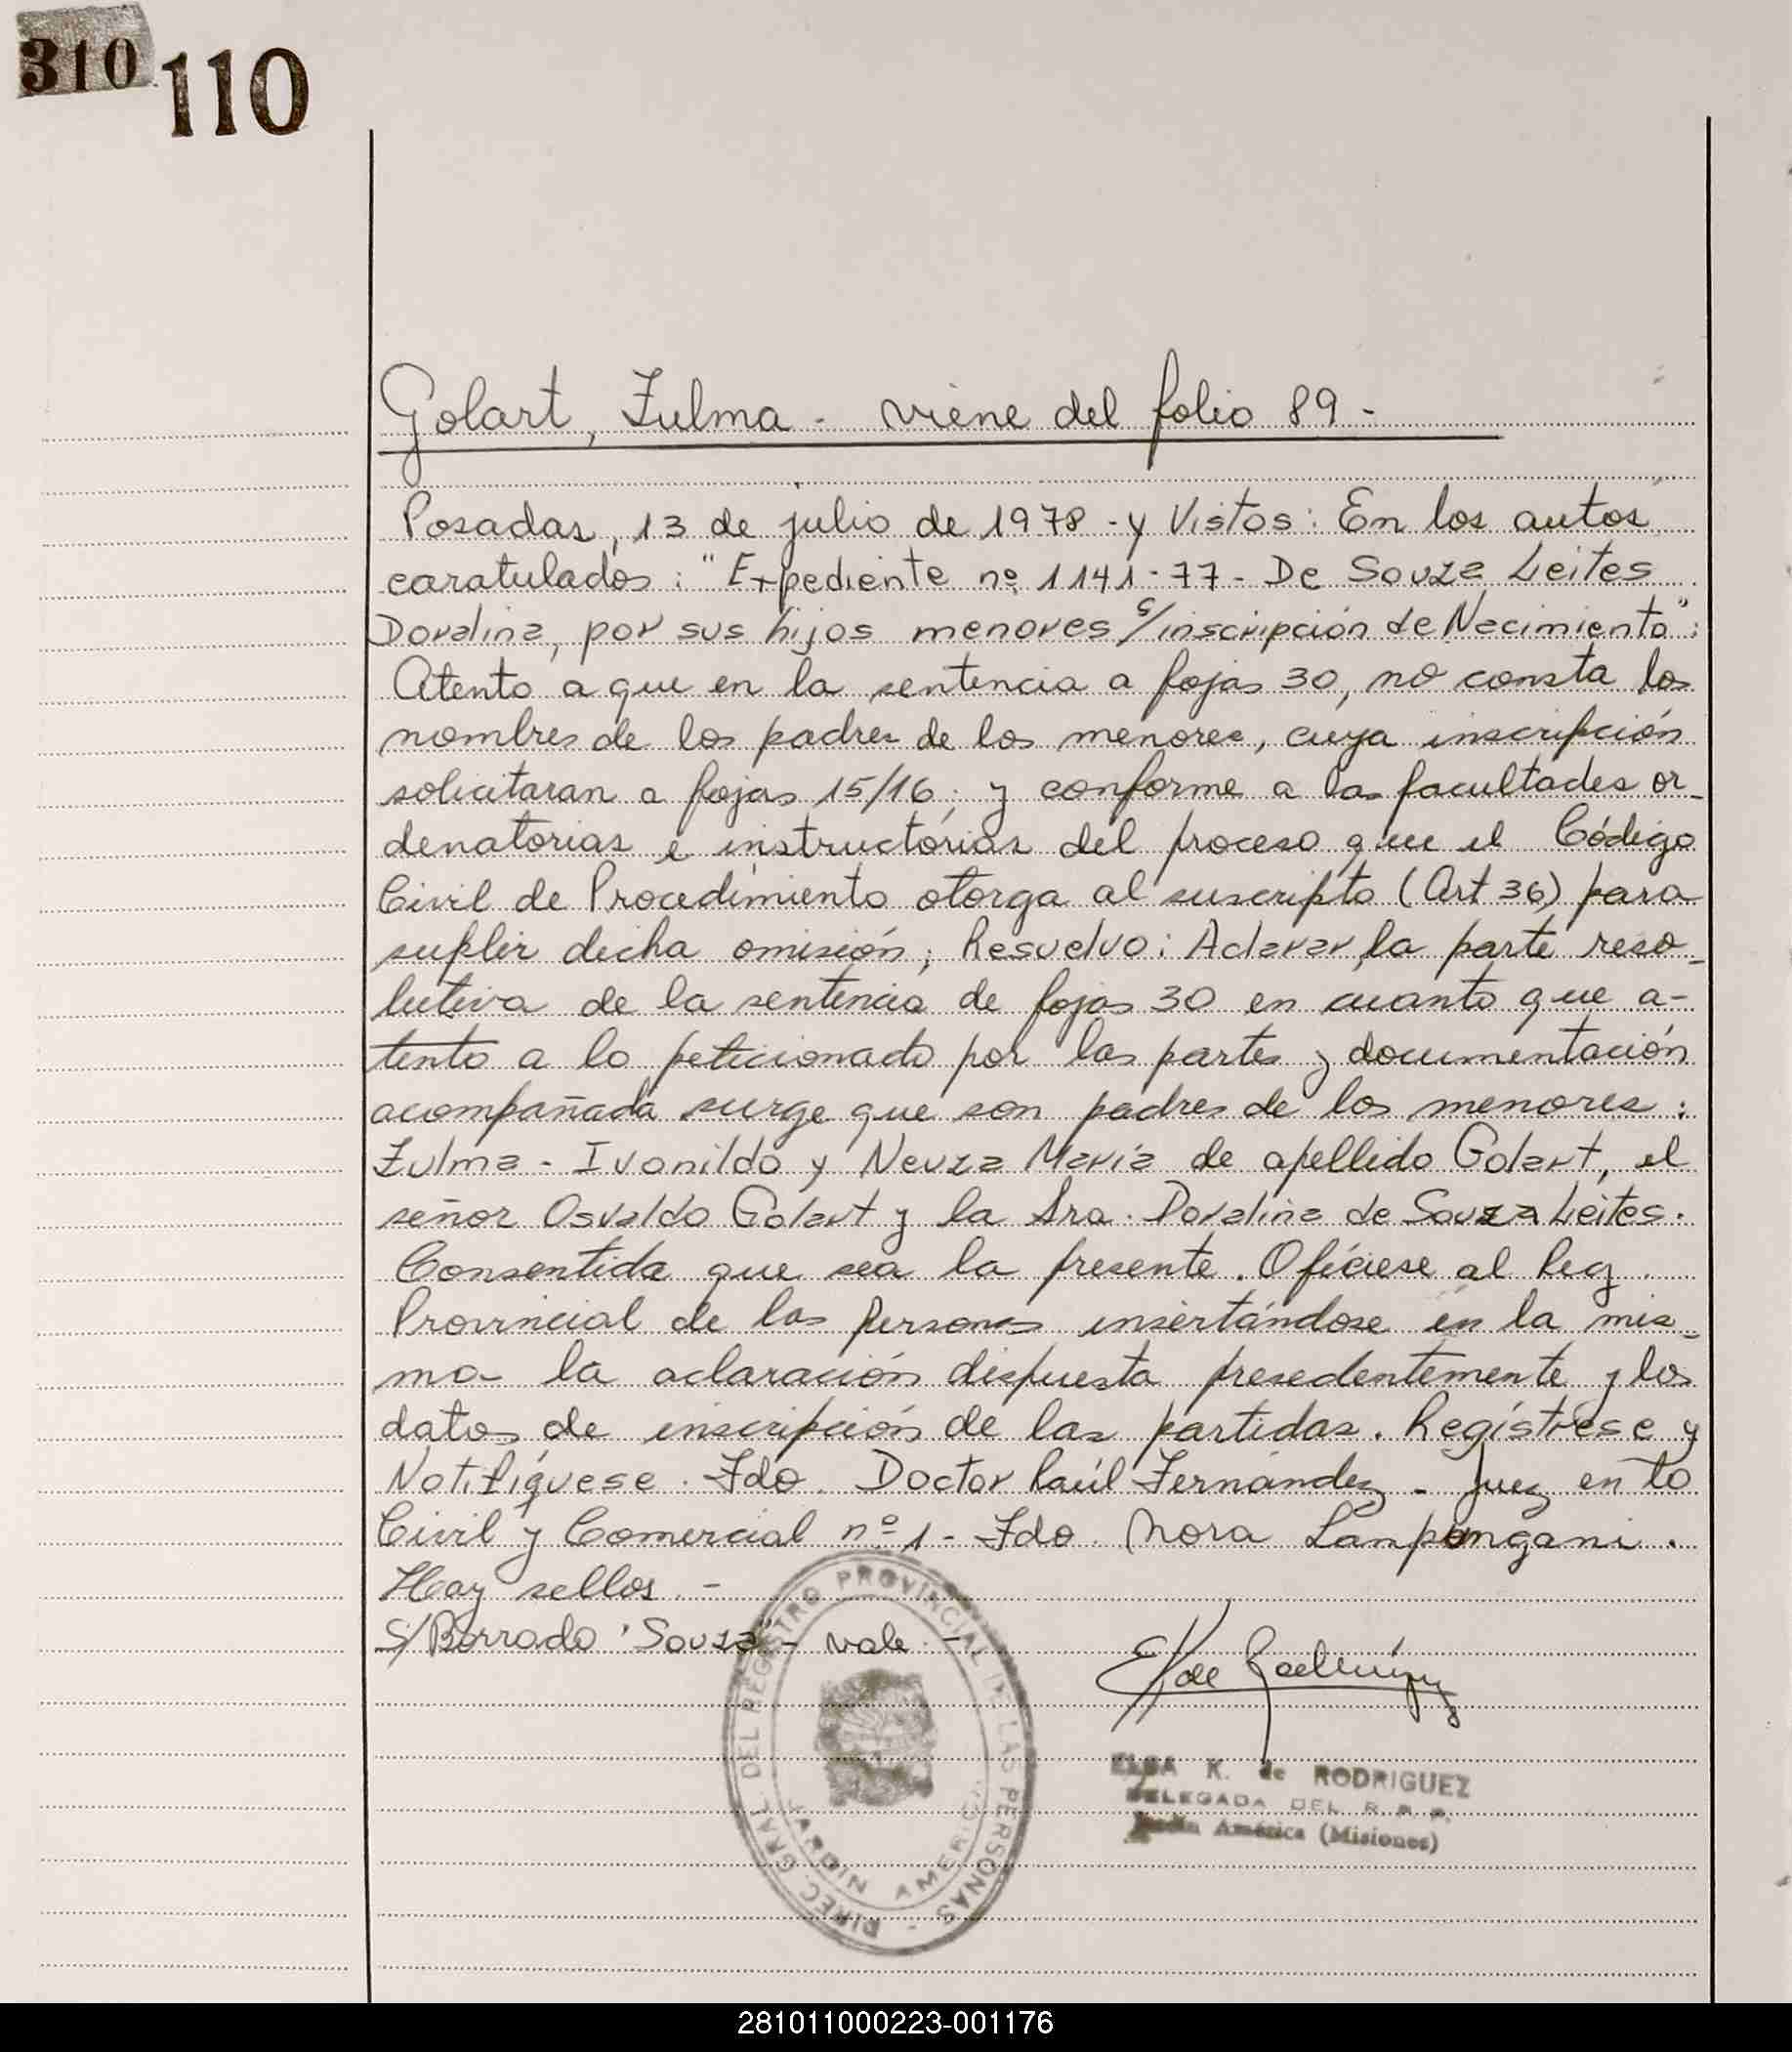 310 110
Golart, Zulma - viene del folio 89 -
Posadas, 13 de julio de 1978 - y Vistos: En los autos
caratulados: "Expediente nº 1141-77- De Souza Leites
Doralina, por sus hijos menores s/inscripción de Nacimiento":
Atento a que en la sentencia a fojas 30, no consta los
nombres de los padres de los menores, cuya inscripción
solicitaran a fojas 15/16; y conforme a las facultades or-
denatorias e instructorias del proceso que el Código
Civil de Procedimiento otorga al suscripto (Art 36) para
suplir dicha omisión; Resuelvo: Aclarar, la parte reso-
lutiva de la sentencia de fojas 30 en cuanto que a-
tento a lo peticionado por las partes y documentación
acompañada surge que son padres de los menores:
Zulma - Ivonildo y Neuza María de apellido Golart, el
señor Osvaldo Golart y la Sra. Doralina de Souza Leites.
Consentida que sea la presente. Ofíciese al Reg.
Provincial de las Personas insertándose en la mis-
ma la aclaración dispuesta presedentemente y los
datos de inscripción de las partidas. Regístrese y
Notifíquese. Fdo. Doctor Raúl Fernández - Juez en lo
Civil y Comercial nº 1 - Fdo. Nora Lampugnani.
Hay sellos. -
S/Borrado "Souza" - vale. -
E K de Rodríguez
DIREC. GRAL. DEL REGISTRO PROVINCIAL DE LAS PERSONAS -
JARDIN AMERICA
ELSA K. de RODRIGUEZ
DELEGADA DEL R. P. P.
Jardín América (Misiones)
281011000223-001176